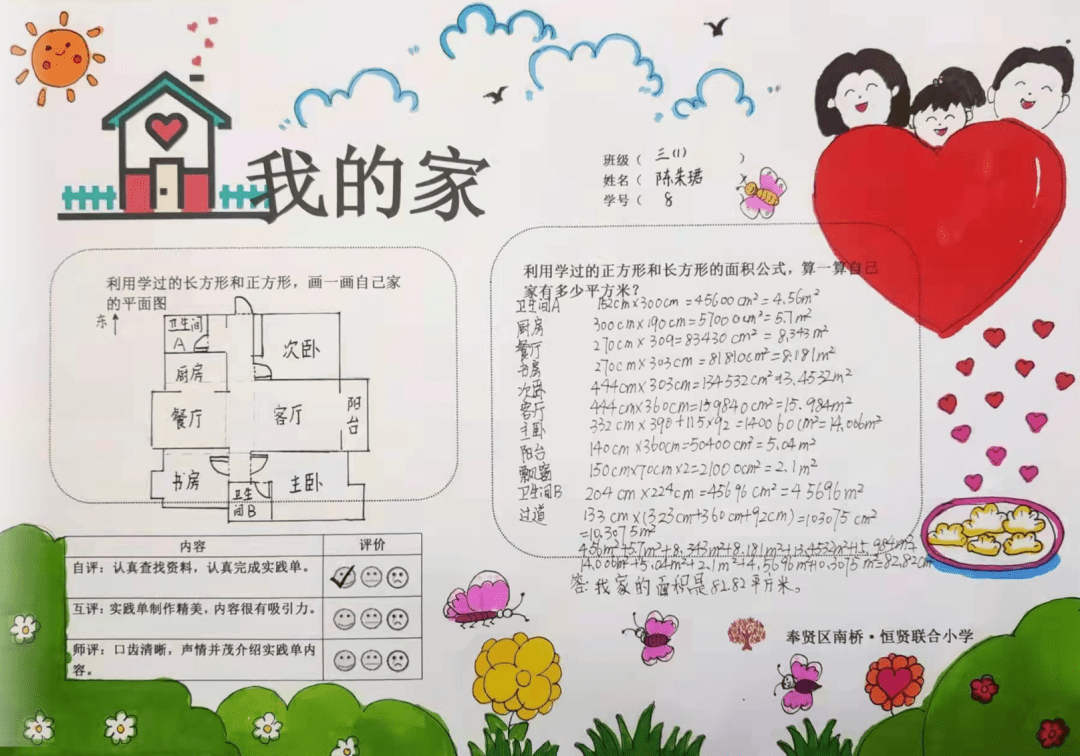 我的家
班级（ 三(1) ）
姓名（ 陈朱珺 ）
学号（ 8
利用学过的长方形和正方形，画一画自己家
的平面图
东
卫生间
A
次卧
厨房
餐厅
客厅
阳台
书房
卫生
间B
主卧
利用学过的正方形和长方形的面积公式，算一算自己
家有多少平方米？
卫生间A 152cm×300cm=45600cm²=4.56m²
厨房 300cm×190cm=57000cm²=5.7m²
餐厅 270cm×309=83430cm²=8.343m²
书房 270cm×303cm=81810cm²=8.181m²
次卧 444cm×303cm=134532cm²=13.4532m²
客厅 444cm×360cm=159840cm²=15.984m²
主卧 332cm×390+115×92=140060cm²=14.006m²
阳台 140cm×360cm=50400cm²=5.04m²
飘窗 150cm×70cm×2=21000cm²=2.1m²
卫生间B 204cm×224cm=45696cm²=4.5696m²
过道 133cm×(323cm+360cm+92cm)=103075cm²
=10.3075m²
4.56m²+5.7m²+8.343m²+8.181m²+13.4532m²+15.984m²+
14.006m²+5.04m²+2.1m²+4.5696m²+10.3075m²=82.82cm
答：我家的面积是82.82平方米。
内容 评价
自评：认真查找资料，认真完成实践单。
互评：实践单制作精美，内容很有吸引力。
师评：口齿清晰，声情并茂介绍实践单内
容。
奉贤区南桥·恒贤联合小学